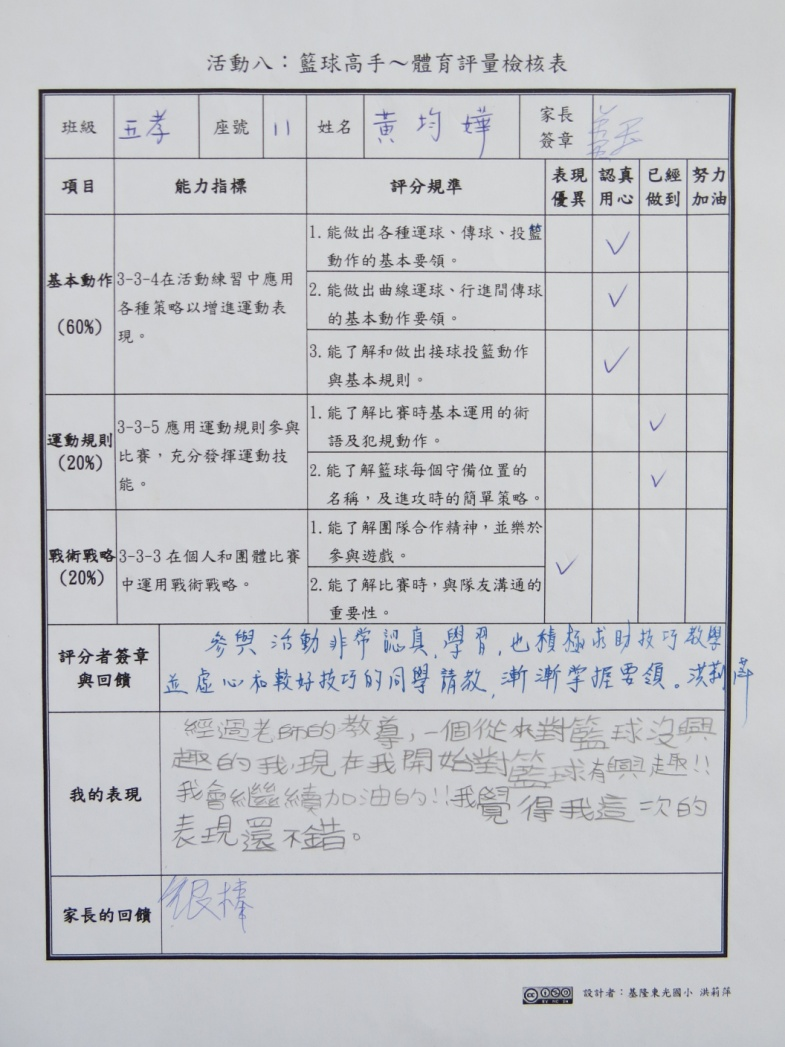 活動八：籃球高手～體育評量檢核表
班級 五孝 座號 11 姓名 黃均嬅 家長簽章
項目 能力指標 評分規準 表現優異 認真用心 已經做到 努力加油
基本動作
(60%)
3-3-4在活動練習中應用
各種策略以增進運動表
現。
1.能做出各種運球、傳球、投籃
動作的基本要領。
✓
2.能做出曲線運球、行進間傳球
的基本動作要領。
✓
3.能了解和做出接球投籃動作
與基本規則。
✓
運動規則
(20%)
3-3-5 應用運動規則參與
比賽，充分發揮運動技
能。
1.能了解比賽時基本運用的術
語及犯規動作。
✓
2.能了解籃球每個守備位置的
名稱，及進攻時的簡單策略。
✓
戰術戰略
(20%)
3-3-3 在個人和團體比賽
中運用戰術戰略。
1.能了解團隊合作精神，並樂於
參與遊戲。
2.能了解比賽時，與隊友溝通的
重要性。
✓
評分者簽章
與回饋
參與活動非常認真學習，也積極求助技巧教學
並虛心和較好技巧的同學請教，漸漸掌握要領。洪莉萍
我的表現
經過老師的教導，一個從來對籃球沒興
趣的我，現在我開始對籃球有興趣!!
我會繼續加油的!!我覺得我這一次的
表現還不錯。
家長的回饋
很棒
cc
設計者：基隆東光國小 洪莉萍